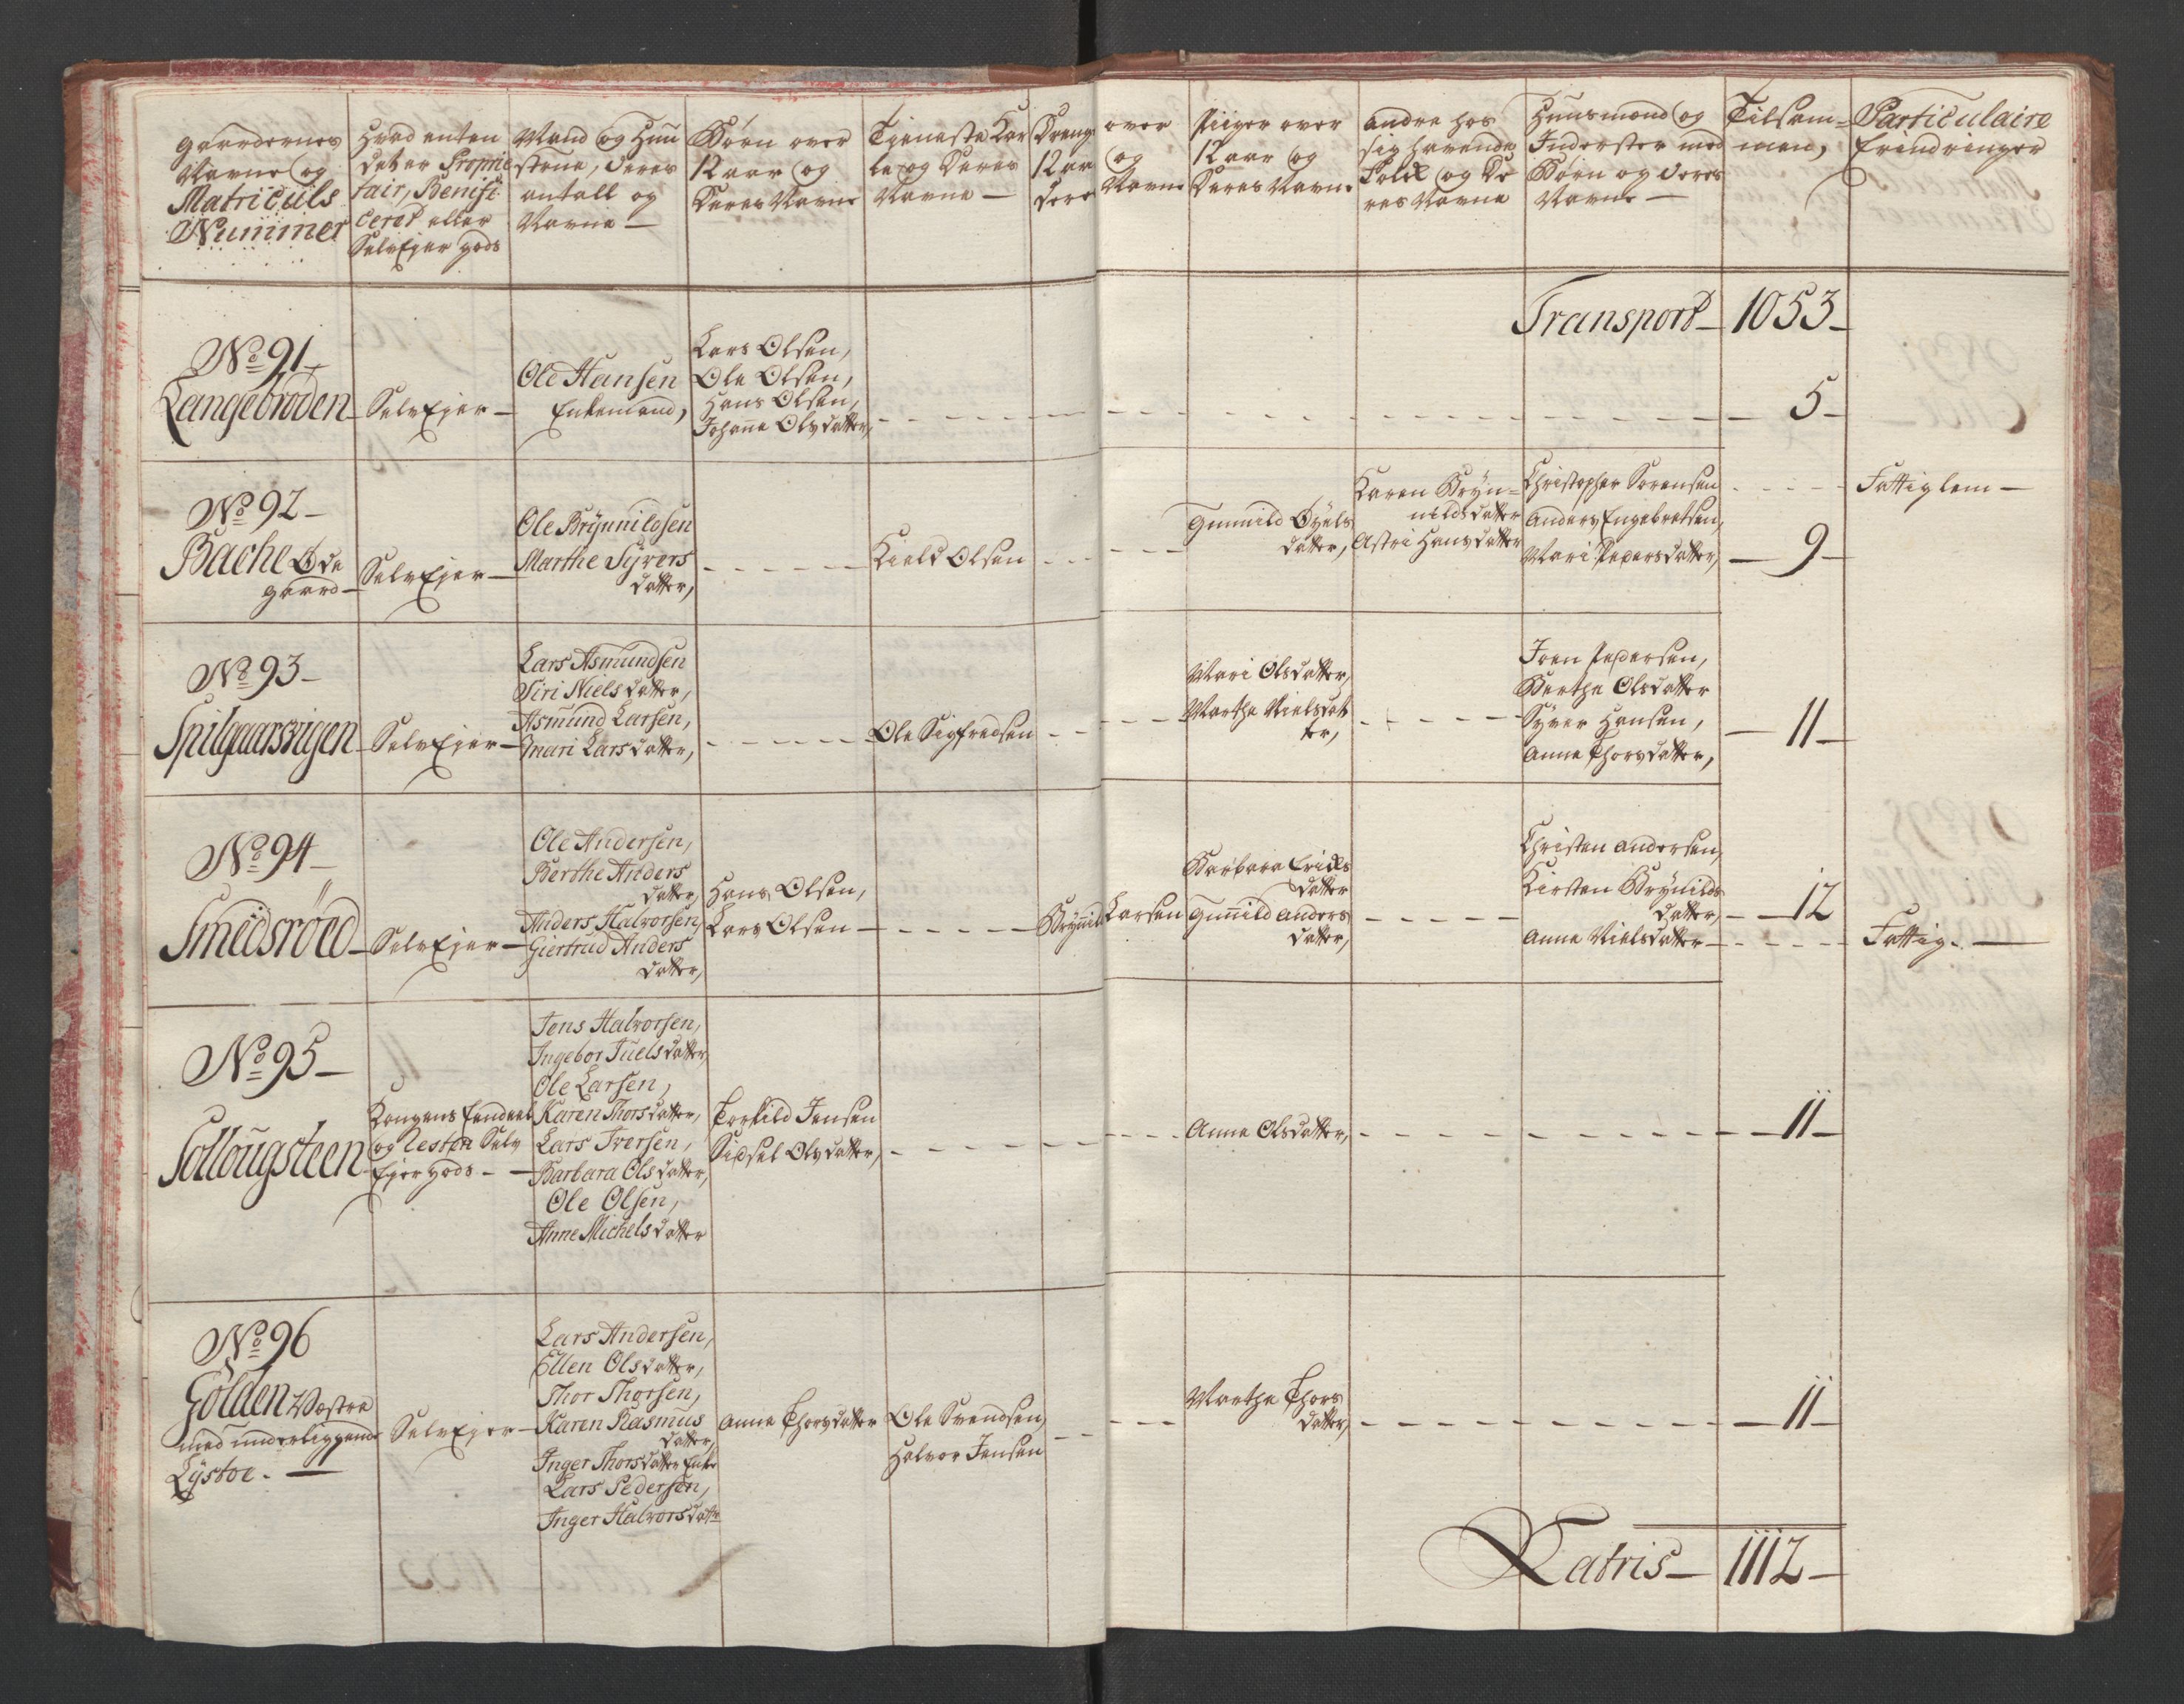 Gaardernes
Navne og
Matriculs
Nummer
Hvad enten
det er Proprie
tair, Benifi
ceret eller
SelvEjer Gods
Mand og Huu
strue, deres
antall og
Navne —
Børn over
12 aar og
deres Navne
Tjeneste Kar
le og deres
Navne —
Drenge over
12 aar og
deres Navne
Piiger over
12 aar og
deres Navne
Andre hos
sig havende
Folk og de
res Navne
Huusmænd og
Inderster med
Børn og deres
Navne —
Tilsam=
men,
Particulaire
Erindringer
Transport — 1053 —
No 91 —
Langebröden —
SelvEjer —
Ole Hansen
Enkemand,
Lars Olsen,
Ole Olsen,
Hans Olsen,
Johane Olsdatter,
5 —
No 92 —
Bache Øde
gaard —
SelvEjer —
Ole Brÿnnildsen
Marthe Sÿvers
datter,
Kield Olsen
Gunnild Øÿels
datter,
Karen Brÿn=
nildsdatter
Astri Hansdatter
Christopher Sørensen
Anders Engebretsen,
Mari Pedersdatter,
9 —
Fattiglem —
No 93 —
Spilgaarsvigen —
SelvEjer —
Lars Asmundsen
Siri Nielsdatter,
Asmund Larsen,
Mari Larsdatter,
Ole Sigfredsen
Mari Olsdatter,
Marthe Nielsdat
ter,
Joen Pedersen,
Berthe Olsdatter
Sÿver Hansen,
Anne Thorsdatter,
11 —
No 94 —
Smedsröed —
SelvEjer —
Ole Andersen,
Berthe Anders
datter,
Anders Halvorsen,
Giertrud Anders
datter,
Hans Olsen,
Lars Olsen —
Brÿnild Larsen
Barbara Erichs
datter
Gunild Anders
datter,
Christen Andersen,
Kirsten Brÿnilds
datter,
Anne Nielsdatter —
12
Fattig. —
No 95 —
Sollougsteen —
Kongens Eendeel
og Resten Selv
Ejergods —
Jens Halvorsen,
Ingebor Juelsdatter,
Ole Larsen,
Karen Thorsdatter,
Lars Iversen,
Barbara Olsdatter,
Ole Olsen,
Anne Michelsdatter
Torkild Jensen
Sidsel Olsdatter,
Anne Olsdatter,
11 —
No 96
Golden Væstre
med underliggende
Lÿstoe. —
SelvEjer —
Lars Andersen,
Ellen Olsdatter,
Thor Thorsen,
Karen Rasmus
datter,
Inger Thorsdatter Enke
Lars Pedersen,
Inger Halvorsdatter
Anne Thorsdatter
Ole Svendsen,
Halvor Jensen
Marthe Thors
datter,
11 —
Latris — 1112 —